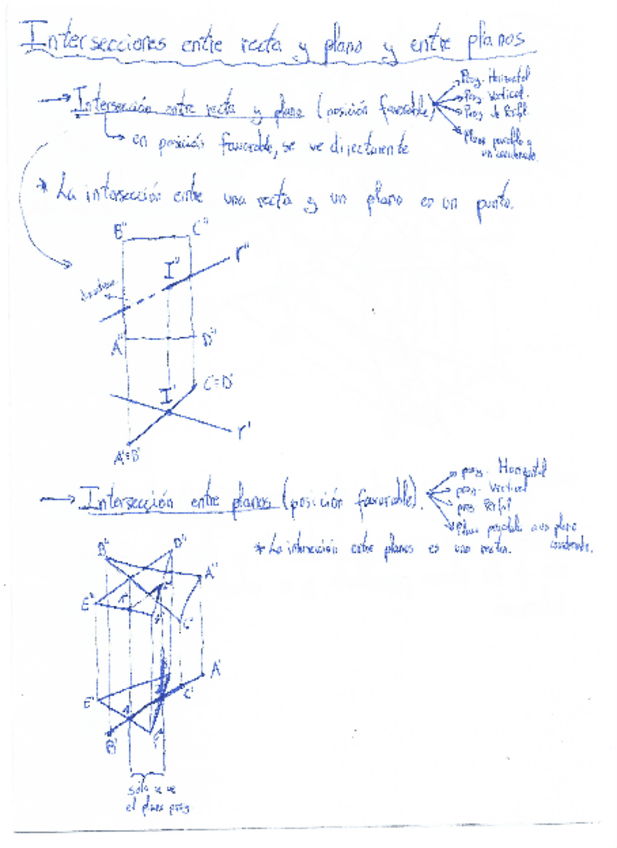 Intersecciones entre recta y plano y entre planos
→ Intersección entre recta y plano (posición favorable)
Proy. Horizontal
Proy. Vertical
Proy. de Perfil
Plano paralelo a un coordenado
↳ en posición favorable, se ve directamente
* La intersección entre una recta y un plano es un punto.
B" C" r"
I"
A" D"
C'≡D'
I'
r'
A'≡B'
→ Intersección entre planos (posición favorable).
proy. Horizontal
proy. Vertical
proy. Perfil
Plano paralelo a un plano coordenado.
* La intersección entre planos es una recta.
B" D"
A"
E"
C"
A'
E' C'
B' F'
solo se ve
el plano proy